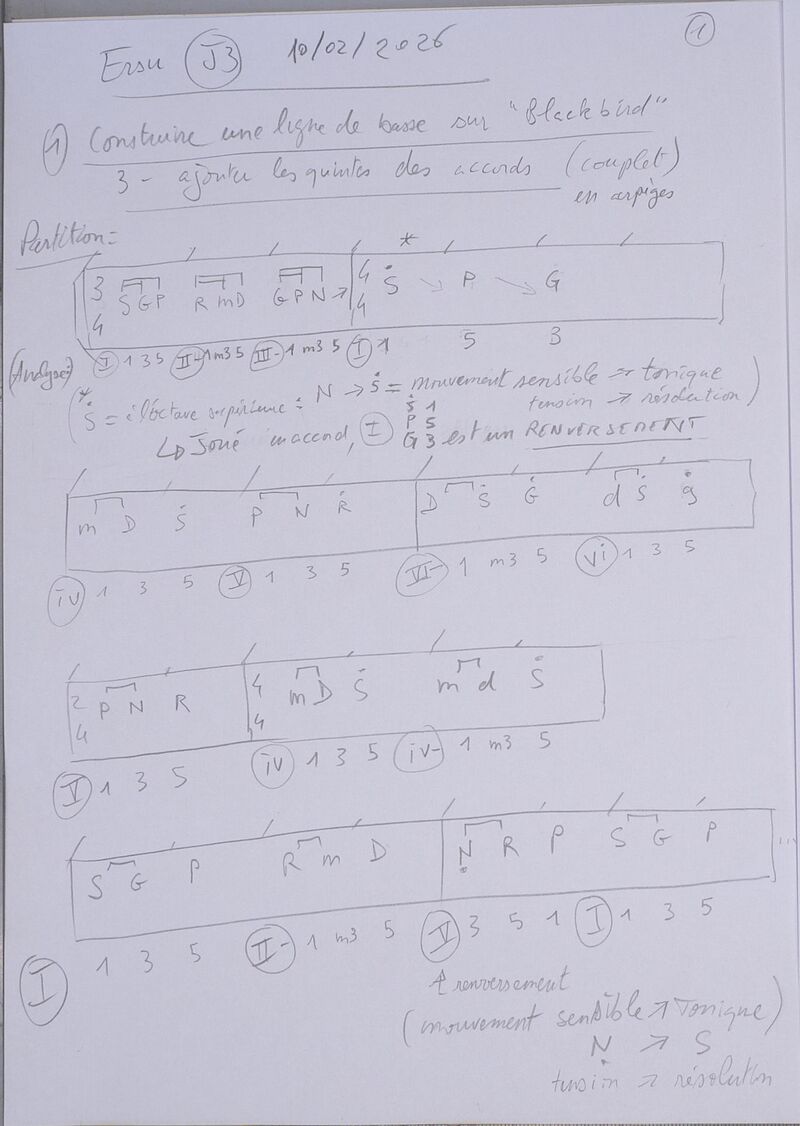 Ersu J3 10/02/2026 1
1) Construire une ligne de basse sur "Blackbird"
3 - ajouter les quintes des accords (couplet)
en arpèges
Partition =
*
3 4 S G P R m D G P N → 4 4 Ṡ → P → G
(Analyse:) I 1 3 5 II- 1 m3 5 III- 1 m3 5 I 1 5 3
(* Ṡ = à l'octave supérieure : N → Ṡ = mouvement sensible → tonique
tension → résolution)
↳ Joué en accord, I Ṡ 1 P 5 G 3 est un RENVERSEMENT
m D Ṡ P N Ṙ D Ṡ Ġ d Ṡ ġ
iv 1 3 5 V 1 3 5 VI- 1 m3 5 vi 1 3 5
2 4 P N R 4 4 m D Ṡ m d Ṡ
V 1 3 5 iv 1 3 5 iv- 1 m3 5
S G P R m D Ṇ R P S G P ...
I 1 3 5 II- 1 m3 5 V 3 5 1 I 1 3 5
↑ renversement
(mouvement sensible → Tonique)
Ṇ → S
tension → résolution